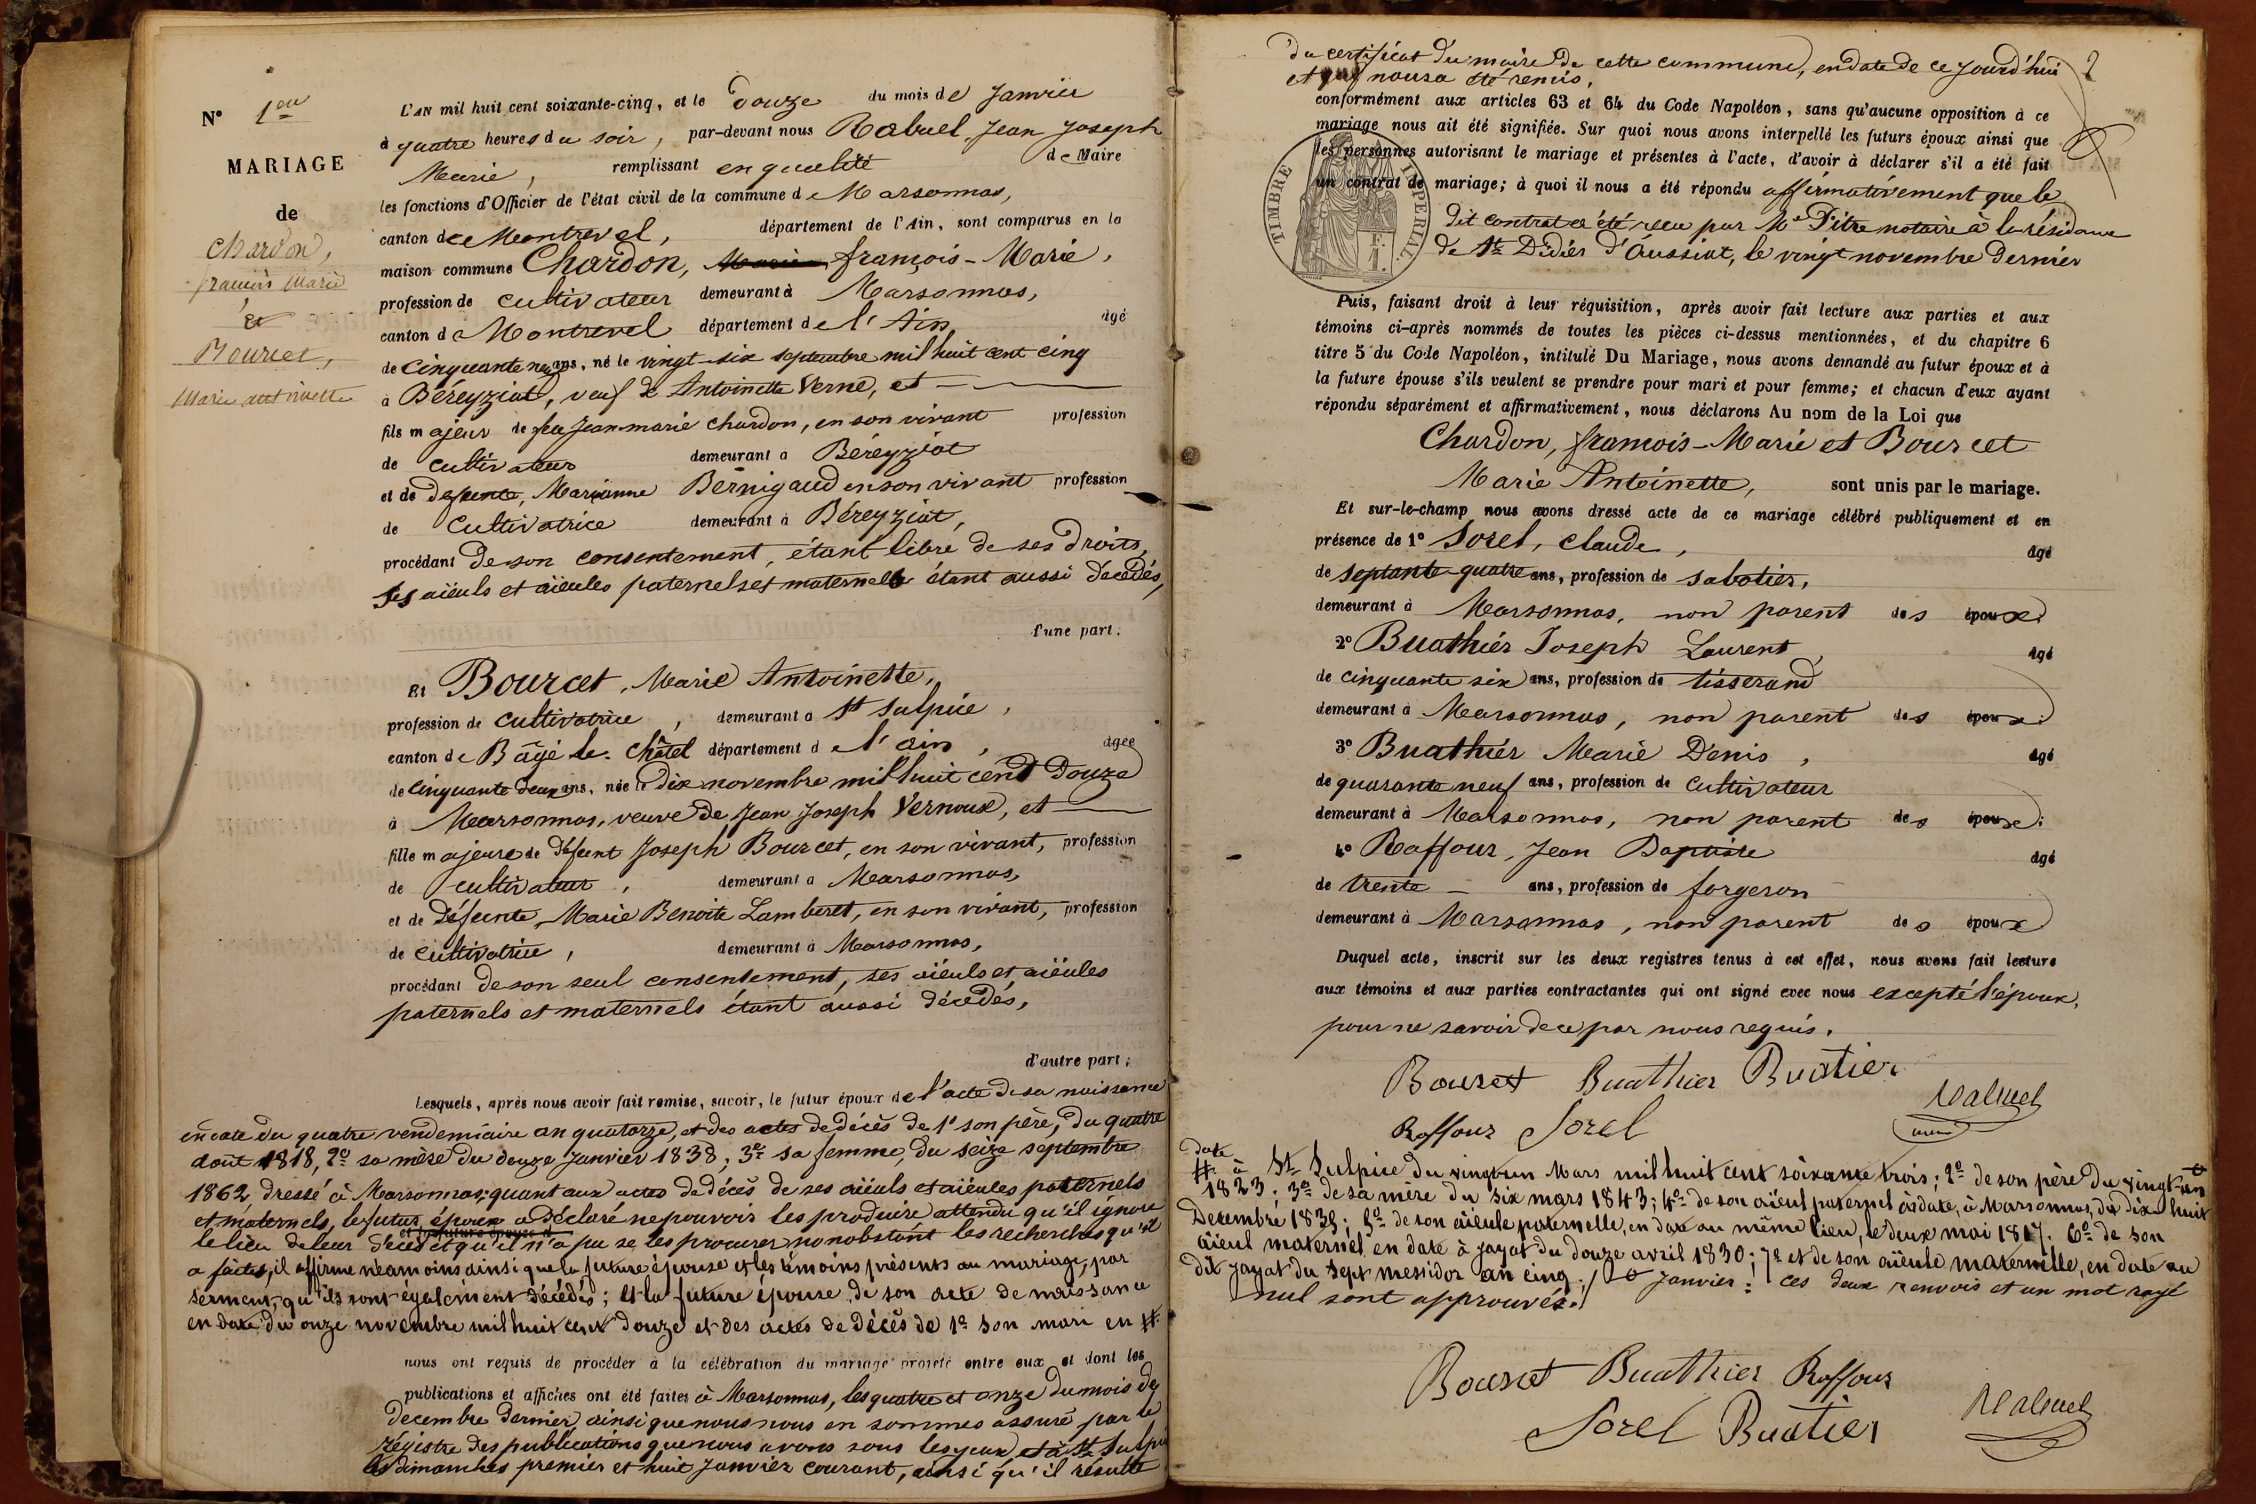 N° 1er
MARIAGE
de
Chardon,
françois Marie
Et
Bourcet,
Marie antoinette
L'AN mil huit cent soixante-cinq, et le douze du mois de Janvier
à quatre heures du soir, par-devant nous Rabuel, Jean Joseph
Marie, remplissant en qualité de Maire
les fonctions d'Officier de l'état civil de la commune de Marsonnas,
canton de Montrevel, département de l'Ain, sont comparus en la
maison commune Chardon, françois-Marie,
profession de cultivateur demeurant à Marsonnas,
canton de Montrevel département de l'Ain, âgé
de cinquante neuf ans, né le vingt-six septembre mil huit cent cinq
à Béreyziat, veuf de Antoinette Verne, et
fils majeur de feu Jean-marie chardon, en son vivant profession
de cultivateur demeurant à Béreyziat
et de défunte, Marianne Bernigaud en son vivant profession
de cultivatrice demeurant à Béreyziat,
procédant de son consentement, étant libre de ses droits,
ses aïeuls et aïeules paternels et maternels étant aussi décédés,
d'une part;
Et Bourcet, Marie Antoinette,
profession de cultivatrice, demeurant à St Sulpice,
canton de Bâgé-le-Châtel département de l'ain, âgée
de cinquante deux ans, née le dix novembre mil huit cent douze
à Marsonnas, veuve de Jean Joseph Vernoux, et
fille majeure de défunt Joseph Bourcet, en son vivant, profession
de cultivateur, demeurant à Marsonnas,
et de défunte, Marie Benoite Lamberet, en son vivant, profession
de cultivatrice, demeurant à Marsonnas,
procédant de son seul consentement, ses aïeuls et aïeules
paternels et maternels étant aussi décédés,
d'autre part;
Lesquels, après nous avoir fait remise, savoir, le futur époux de l'acte de sa naissance
en date du quatre vendemiaire an quatorze, et des actes de décès de 1° son père, du quatre
août 1818, 2° sa mère du douze Janvier 1838; 3° sa femme, du seize septembre
1862 dressé à Marsonnas; quant aux actes de décès de ses aïeuls et aïeules paternels
et maternels, le futur époux a déclaré ne pouvoir les produire attendu qu'il ignore
le lieu de leur décès et qu'il n'a pu se les procurer nonobstant les recherches qu'il
a faites, il affirme néamoins ainsi que la future épouse et les témoins présents au mariage, par
serment, qu'ils sont également décédés; et la future épouse de son acte de naissance
en date du onze novembre mil huit cent douze et des actes de décès de 1° son mari en #
nous ont requis de procéder à la célébration du mariage projeté entre eux et dont les
publications et affiches ont été faites à Marsonnas, les quatre et onze du mois de
decembre dernier, ainsi que nous nous en sommes assuré par le
régistre des publications que nous avons sous les yeux, et à St Sulpice
les dimanches premier et huit Janvier courant, ainsi qu'il résulte
2
du certificat du maire de cette commune, en date de ce jourd'hui
et qui nous a été remis,
conformément aux articles 63 et 64 du Code Napoléon, sans qu'aucune opposition à ce
mariage nous ait été signifiée. Sur quoi nous avons interpellé les futurs époux ainsi que
les personnes autorisant le mariage et présentes à l'acte, d'avoir à déclarer s'il a été fait
un contrat de mariage; à quoi il nous a été répondu affirmativement que le
dit contrat a été reçu par Me Pitre notaire à la résidence
de St Didier d'Aussiat, le vingt novembre dernier
TIMBRE IMPÉRIAL
Puis, faisant droit à leur réquisition, après avoir fait lecture aux parties et aux
témoins ci-après nommés de toutes les pièces ci-dessus mentionnées, et du chapitre 6
titre 5 du Code Napoléon, intitulé Du Mariage, nous avons demandé au futur époux et à
la future épouse s'ils veulent se prendre pour mari et pour femme; et chacun d'eux ayant
répondu séparément et affirmativement, nous déclarons Au nom de la Loi que
Chardon, françois-Marie et Bourcet
Marie Antoinette, sont unis par le mariage.
Et sur-le-champ nous avons dressé acte de ce mariage célébré publiquement et en
présence de 1° Sorel, Claude, âgé
de septante-quatre ans, profession de sabotier,
demeurant à Marsonnas, non parent des époux;
2° Buathier Joseph Laurent, âgé
de cinquante six ans, profession de tisserand
demeurant à Marsonnas, non parent des époux;
3° Buathier Marie Denis, âgé
de quarante neuf ans, profession de cultivateur
demeurant à Marsonnas, non parent des époux;
4° Raffour, Jean Baptiste âgé
de trente ans, profession de forgeron
demeurant à Marsonnas, non parent des époux
Duquel acte, inscrit sur les deux registres tenus à cet effet, nous avons fait lecture
aux témoins et aux parties contractantes qui ont signé avec nous excepté l'époux,
pour ne savoir de ce par nous requis.
Bourset Buathier Buatier
Roffour Sorel Rabuel
maire
# date à St Sulpice du vingt un Mars mil huit cent soixante trois; 2° de son père du vingt-un
1823; 3° de sa mère du six mars 1843; 4° de son aïeul paternel à date, à Marsonnas, du dix-huit
Decembre 1839; 5° de son aïeule paternelle, en date au même lieu, le deux mai 1817. 6° de son
aïeul maternel en date à jayat du douze avril 1830; 7° et de son aïeule maternelle, en date au
dit jayat du sept messidor an cinq. Janvier: ces deux renvois et un mot rayé
nul sont approuvés.
Bourset Buathier Roffour
Sorel Buatier Rabuel